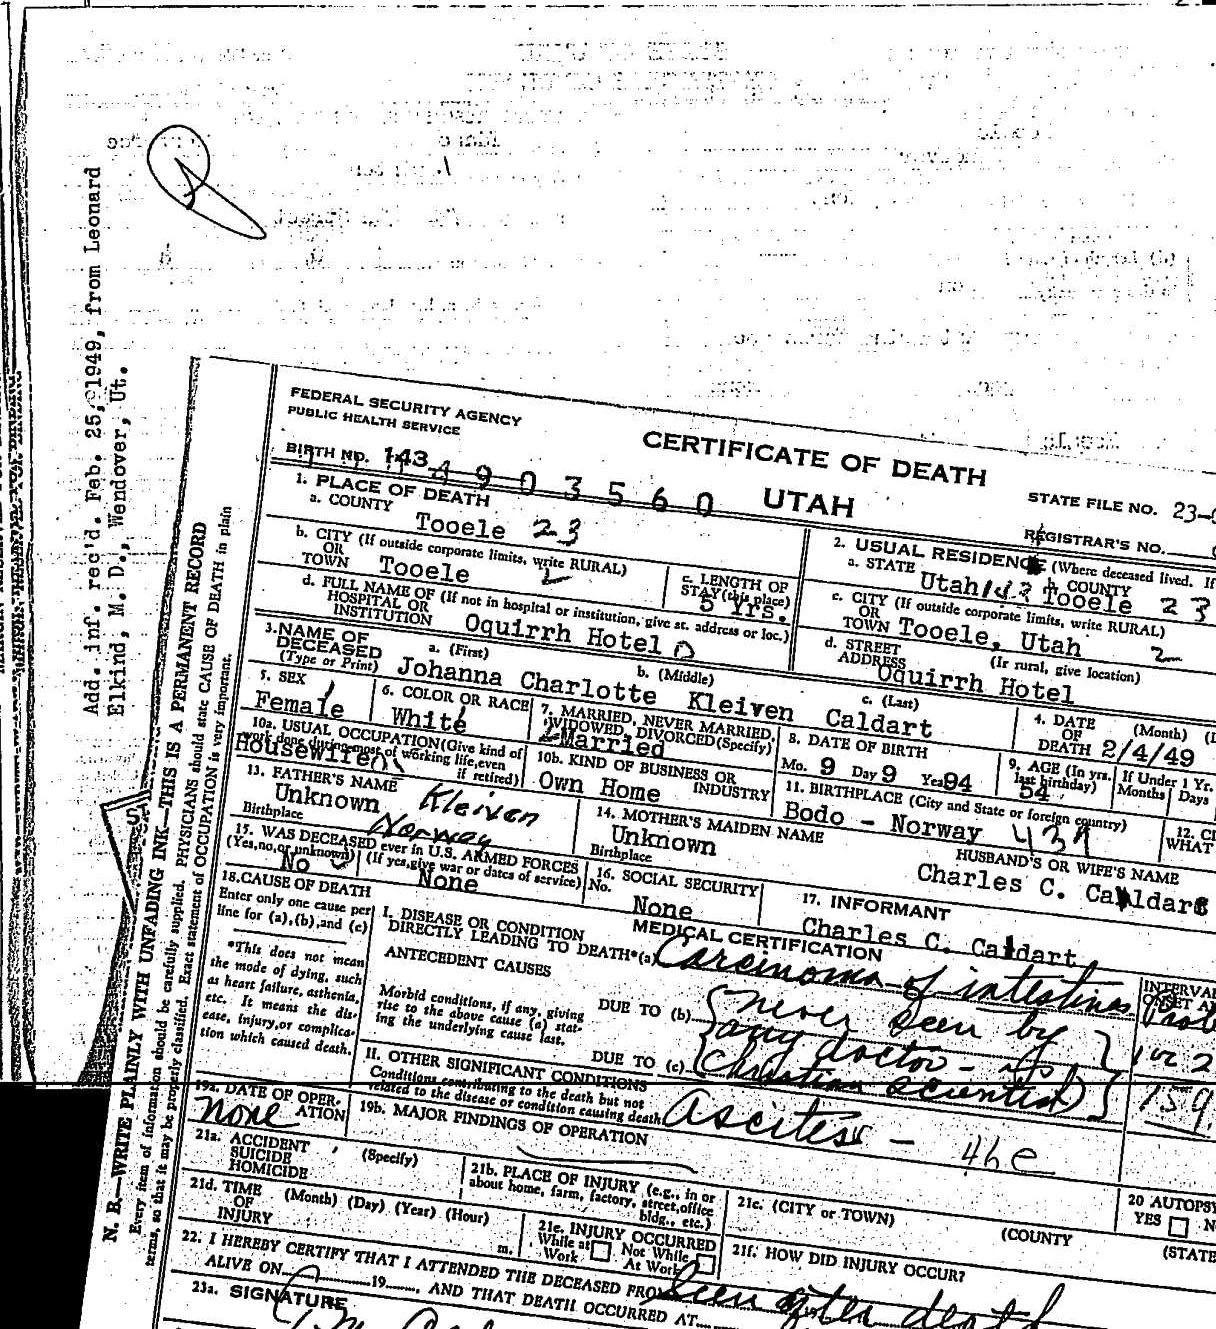 Add. inf. rec'd. Feb. 25, 1949, from Leonard
Elkind, M. D., Wendover, Ut.
N. B.—WRITE PLAINLY WITH UNFADING INK—THIS IS A PERMANENT RECORD
Every item of information should be carefully supplied. PHYSICIANS should state CAUSE OF DEATH in plain
terms, so that it may be properly classified. Exact statement of OCCUPATION is very important.
FEDERAL SECURITY AGENCY
PUBLIC HEALTH SERVICE
CERTIFICATE OF DEATH
UTAH
BIRTH NO. 143 4903560
STATE FILE NO. 23-
REGISTRAR'S NO.
1. PLACE OF DEATH
a. COUNTY
Tooele 23
b. CITY (If outside corporate limits, write RURAL)
OR
TOWN Tooele 2
c. LENGTH OF
STAY (this place)
5 Yrs.
d. FULL NAME OF (If not in hospital or institution, give st. address or loc.)
HOSPITAL OR
INSTITUTION Oquirrh Hotel
2. USUAL RESIDENCE (Where deceased lived. If
a. STATE Utah 143 b. COUNTY Tooele 23
c. CITY (If outside corporate limits, write RURAL)
OR
TOWN Tooele, Utah 2
d. STREET (If rural, give location)
ADDRESS Oquirrh Hotel
3. NAME OF
DECEASED
(Type or Print)
a. (First) b. (Middle) c. (Last)
Johanna Charlotte Kleiven Caldart
4. DATE (Month)
OF
DEATH 2/4/49
5. SEX
Female
6. COLOR OR RACE
White
7. MARRIED, NEVER MARRIED,
WIDOWED, DIVORCED (Specify)
Married
8. DATE OF BIRTH
Mo. 9 Day 9 Year 94
9. AGE (In yrs.
last birthday)
54
If Under 1 Yr.
Months Days
10a. USUAL OCCUPATION (Give kind of
work done during most of working life, even
if retired)
Housewife
10b. KIND OF BUSINESS OR
INDUSTRY
Own Home
11. BIRTHPLACE (City and State or foreign country)
Bodo - Norway
12. CI
WHAT
13. FATHER'S NAME
Unknown Kleiven
Birthplace Norway
14. MOTHER'S MAIDEN NAME
Unknown
Birthplace
HUSBAND'S OR WIFE'S NAME
Charles C. Caldart
15. WAS DECEASED ever in U.S. ARMED FORCES
(Yes, no, or unknown) (If yes, give war or dates of service)
No None
16. SOCIAL SECURITY
No.
None
17. INFORMANT
Charles C. Caldart
18. CAUSE OF DEATH
Enter only one cause per
line for (a), (b), and (c)
*This does not mean
the mode of dying, such
as heart failure, asthenia,
etc. It means the dis-
ease, injury, or complica-
tion which caused death.
MEDICAL CERTIFICATION
I. DISEASE OR CONDITION
DIRECTLY LEADING TO DEATH*(a) Carcinoma of intestines
ANTECEDENT CAUSES
Morbid conditions, if any, giving
rise to the above cause (a) stat-
ing the underlying cause last.
DUE TO (b) never seen by
any doctor - is
DUE TO (c) Christian Scientist)
INTERVAL
ONSET A
1 or 2
159
II. OTHER SIGNIFICANT CONDITIONS
Conditions contributing to the death but not
related to the disease or condition causing death.
Ascites -
19a. DATE OF OPER-
ATION
none
19b. MAJOR FINDINGS OF OPERATION
20 AUTOPSY
YES
21a. ACCIDENT (Specify)
SUICIDE
HOMICIDE
21b. PLACE OF INJURY (e.g., in or
about home, farm, factory, street, office
bldg., etc.)
21c. (CITY or TOWN) (COUNTY (STATE
21d. TIME (Month) (Day) (Year) (Hour)
OF
INJURY m.
21e. INJURY OCCURRED
While at Not While
Work At Work
21f. HOW DID INJURY OCCUR?
22. I HEREBY CERTIFY THAT I ATTENDED THE DECEASED FROM Seen after death
ALIVE ON 19 , AND THAT DEATH OCCURRED AT
23a. SIGNATURE